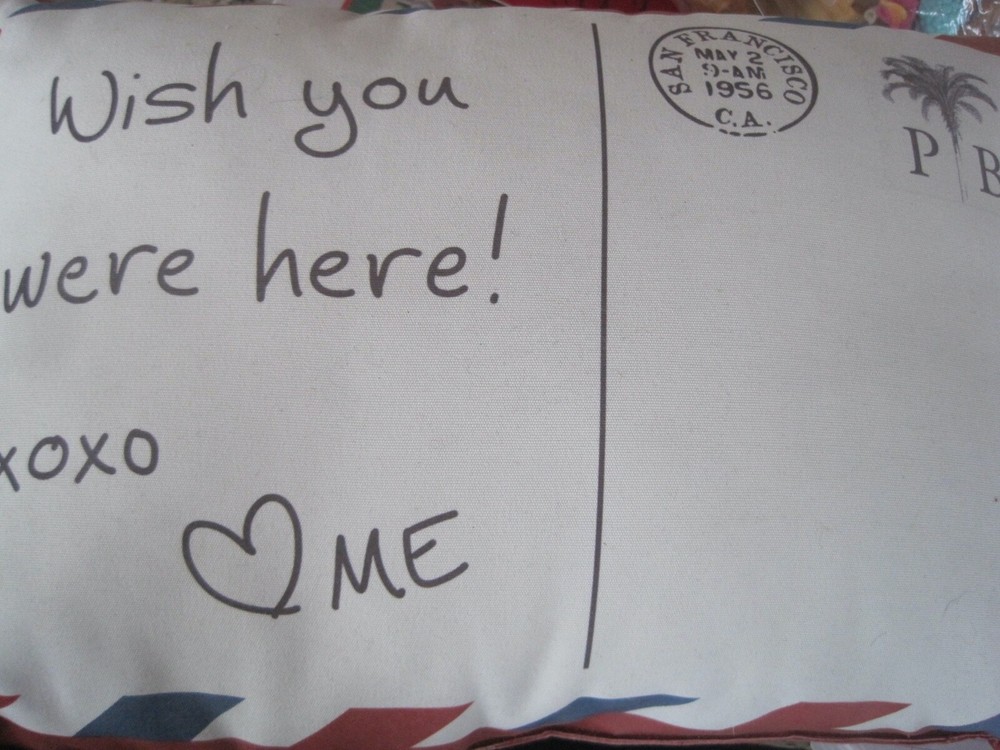 Wish you
were here!
xoxo
ME
SAN FRANCISCO
MAY 2
9-AM
1956
C.A.
P B